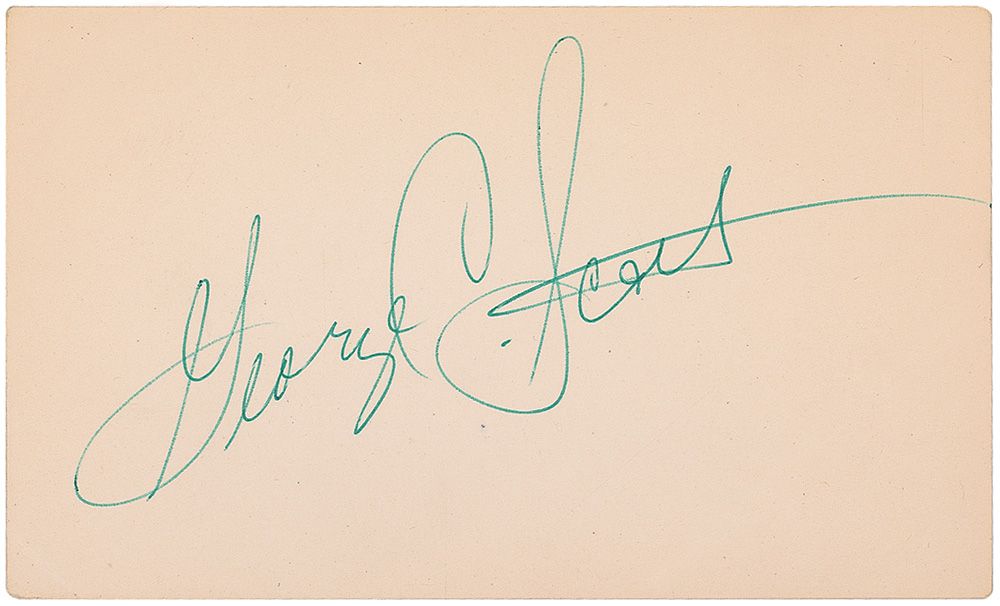 George C. Scott